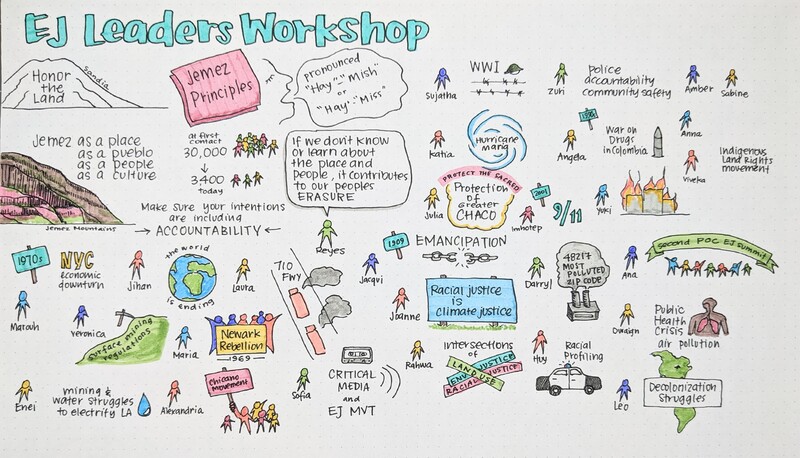 EJ Leaders Workshop
Honor
the
Land
Sandia
Jemez
Principles
pronounced
"Hay"-"Mish"
or
"Hay"-"Miss"
Jemez as a place
as a pueblo
as a people
as a culture
Jemez Mountains
at first
contact
30,000
3,400
today
Make sure your intentions
are including
ACCOUNTABILITY
If we don't know
or learn about
the place and
people, it contributes
to our peoples
ERASURE
Reyes
Sujatha
WWI
Zuri
police
accountability
community safety
Amber
Sabine
Katia
Hurricane
Maria
Angela
War on
Drugs
in Colombia
Anna
Viveka
Indigenous
Land Rights
movement
Julia
PROTECT THE SACRED
Protection
of
Greater
CHACO
2001
Imhotep
9/11
Yuki
1970s
NYC
economic
downturn
Jihan
the world
is ending
Laura
710
FWY
Jacqui
1909
EMANCIPATION
Darryl
48217
MOST
POLLUTED
ZIP CODE
Ana
Second POC EJ Summit
Marouh
Veronica
surface mining
regulations
Maria
Newark
Rebellion
1969
Joanne
Racial justice
is
climate justice
Owaign
Public
Health
Crisis
air pollution
Enei
mining &
water struggles
to electrify LA
Alexandria
Chicano
Movement
Sofia
CRITICAL
MEDIA
and
EJ MVT
Rahwa
intersections
of
LAND USE
ENV. JUSTICE
RACIAL JUSTICE
Huy
Racial
Profiling
Leo
Decolonization
Struggles